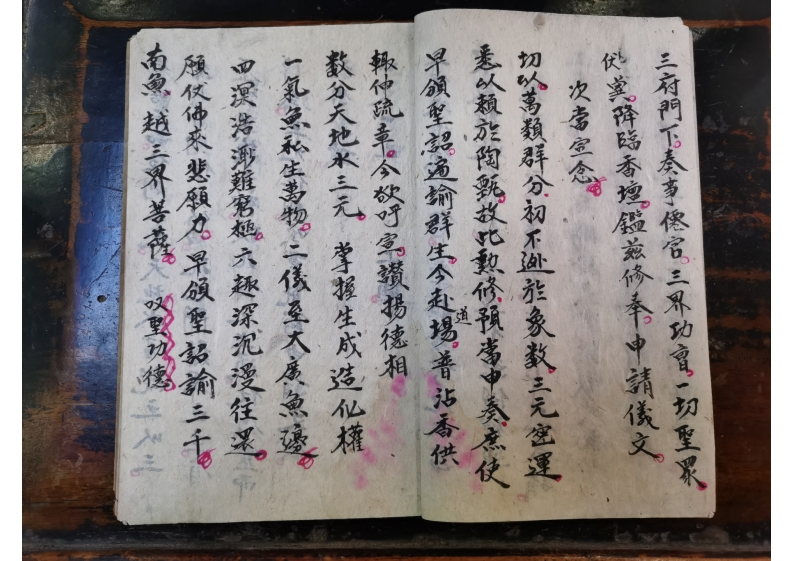 三府門下奏事僊官三界功曹一切聖眾
伏冀降臨香壇鑑茲修奉申請儀文
次當宣念
切以萬類群分初不逃於象數三元密運
悉以賴於陶甄故此懃修預當申奏庶使
早頒聖詔遍諭群生今赴道場普沾香供
輒伸疏章今欲吁宣讚揚德相
數分天地水三元 掌握生成造化權
一氣無私生萬物 二儀至大廣無邊
四溟浩渺難窮極六趣深沉漫往還
願仗佛來悲願力早頒聖詔諭三千
南無 越三界菩薩 叹聖功德